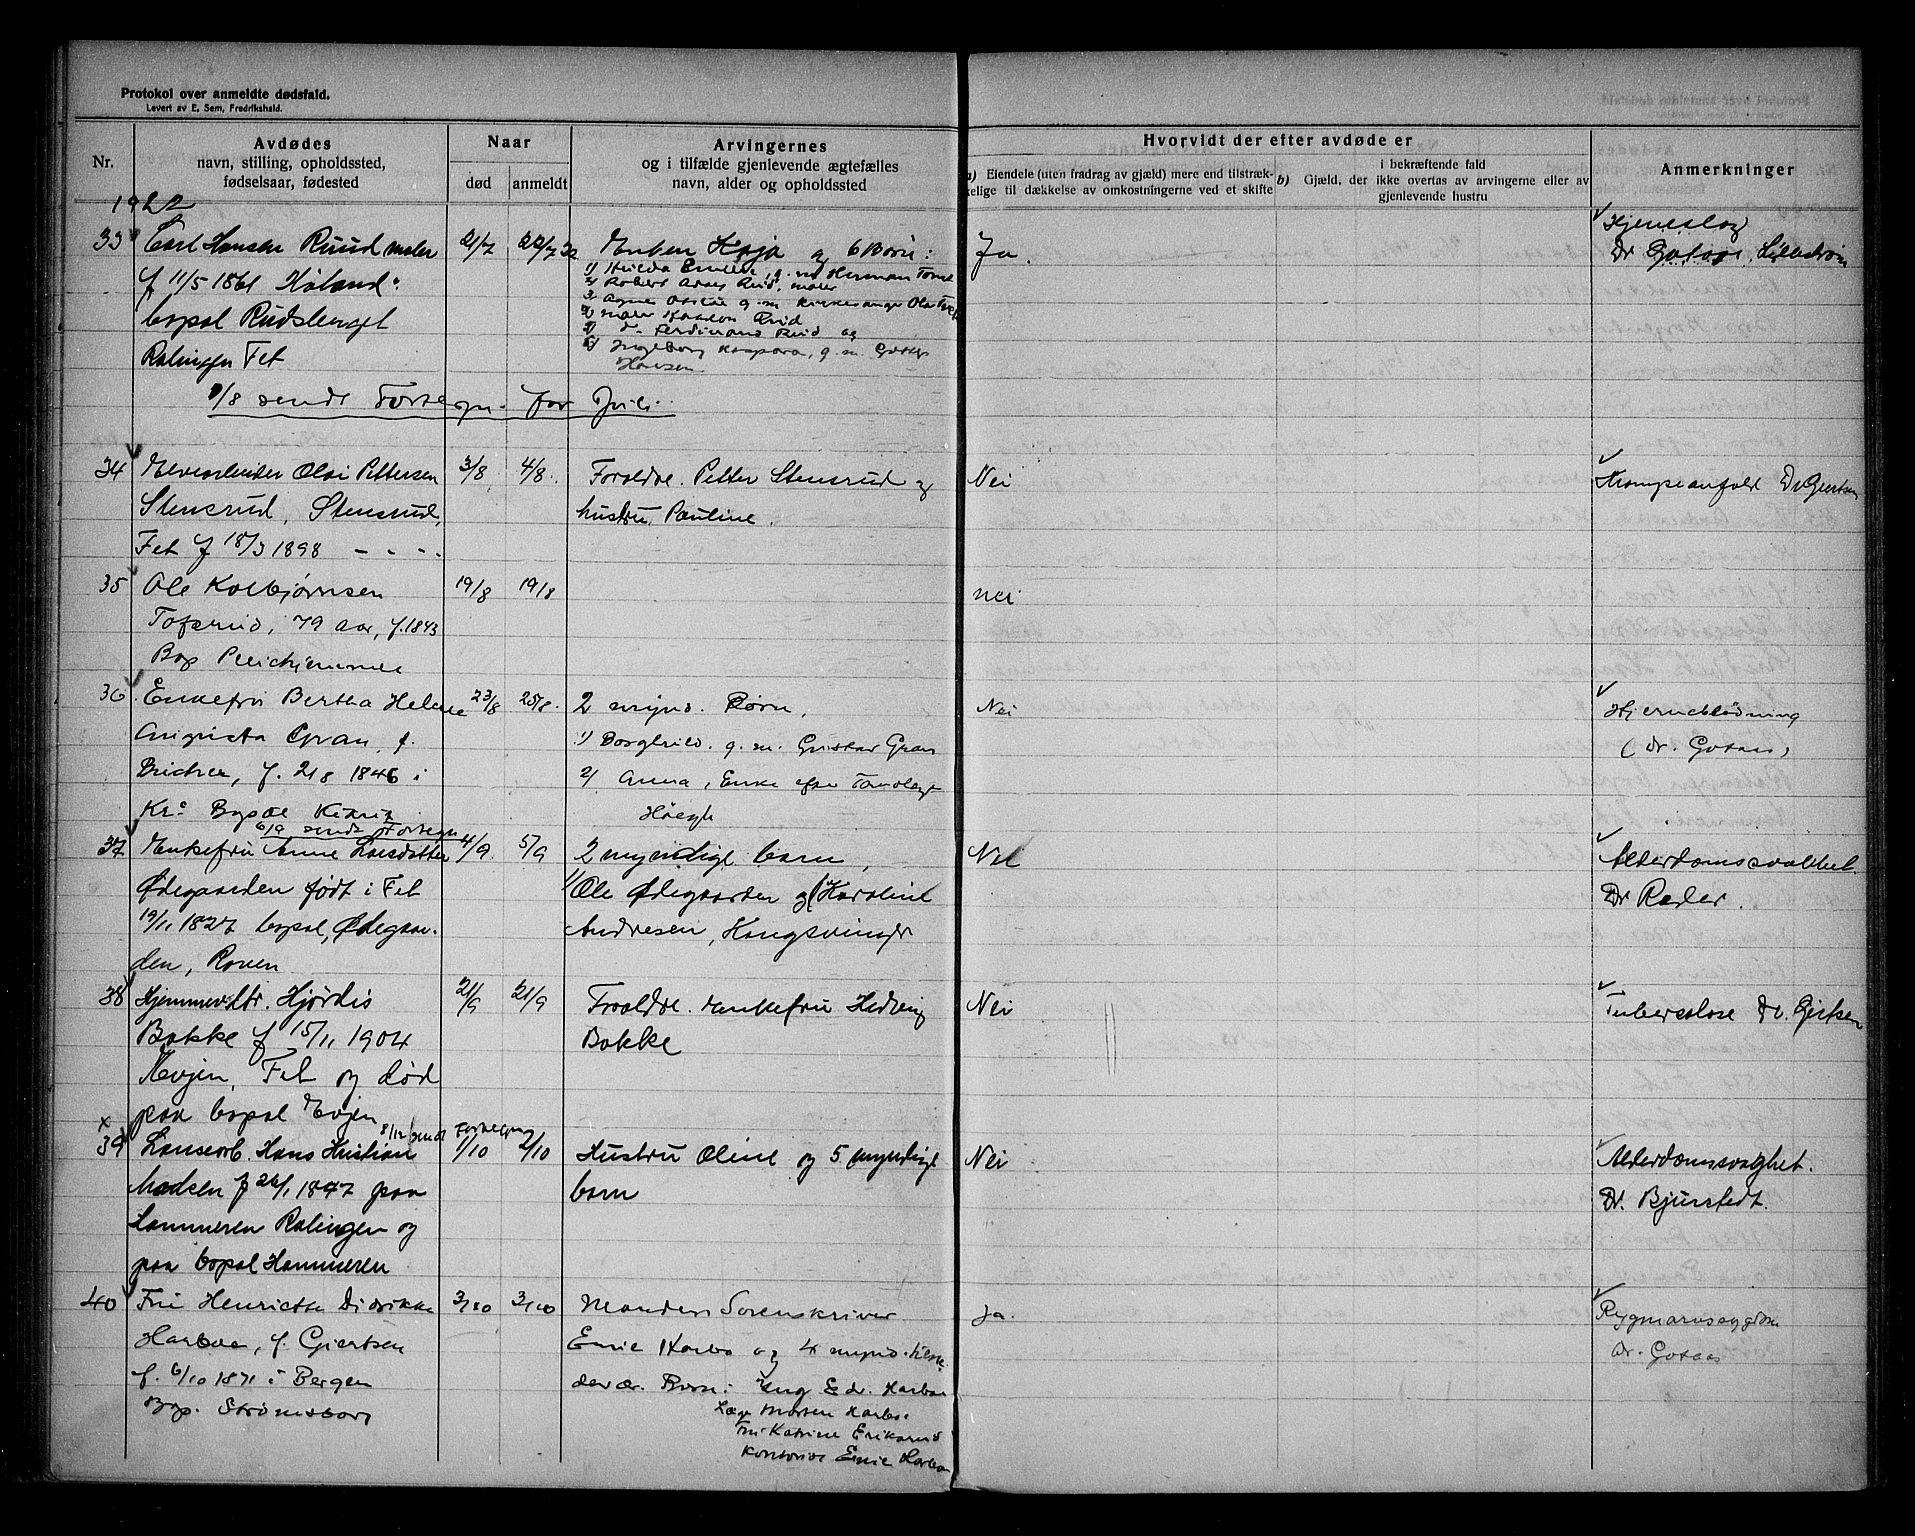 Protokol over anmeldte dødsfald.
Levert av E. Sem, Fredrikshald.
Nr.
Avdødes
navn, stilling, opholdssted,
fødselsaar, fødested
Naar
død
anmeldt
Arvingernes
og i tilfælde gjenlevende ægtefælles
navn, alder og opholdssted
Hvorvidt der efter avdøde er
a) Eiendele (uten fradrag av gjæld) mere end tilstræk-
kelige til dækkelse av omkostningerne ved et skifte
i bekræftende fald
b) Gjæld, der ikke overtas av arvingerne eller av
gjenlevende hustru
Anmerkninger
1922
33 Carl Hansen Ruud maler
f 11/5 1861 Høland
bopæl Rudsberget
Rælingen Fet
21/7
22/7 22
Enken Kaja og 6 Børn:
1) Hulda Emelie, g. m. Herman
2 Robert Ruud, maler
3 g. m. Kirkesanger Ola
4) maler Ruud
5) d. Ferdinand Ruud og
6) Ingeborg Kaspara, g. m.
Hansen
Ja.
Hjerneslag
Dr Gotaas, Lillestrøm
/8 sendt Fortegn. for Juli.
34 Elvearbeider Olai Pettersen
Stensrud, Stensrud,
Fet f 18/3 1898 - - - -
3/8
4/8.
Foreldre. Petter Stensrud og
hustru Pauline.
Nei
Krampeanfald Dr Gjertsen
35 Ole Kolbjørnsen
Tofsrud, 79 aar, f. 1843
Bop Pleiehjemmet
19/8
19/8
nei
36 Enkefru Bertha Helene
Augusta Gran, f.
f. 21/8 1846 i
Kr.a Bopæl
23/8
25/8.
2 mynd. Børn,
1) Borghild. g. m. Gustav Gran
2) Anna, Enke efter Tandlæge
Høegh
Nei
Hjerneblødning
(Dr. Gotaas)
6/9 sendt Fortegn
37 Enkefru Anne Larsdatter
Ødegaarden født i Fet
19/11 1827 bopæl, Ødegaar-
den, Roven
4/9
5/9
2 myndige barn,
1) Ole Ødegaarden og 2) Karoline
Andresen, Kongsvinger
Nei
Alderdomssvakhet.
Dr Røder.
38 Hjemmev. dtr. Hjørdis
Bakke f 15/11 1904
Evjen, Fet og død
paa bopæl Evjen
21/9
21/9
Foreldre. Enkefru Hedvig
Bakke
Nei
Tuberculose Dr. Gjertsen
8/12 sendt Fortegn
x
39 Hans Kristian
Madsen f 26/1 1847 paa
Hammeren Rælingen og
paa bopæl Hammeren
1/10
2/10
Hustru Oline og 5 myndige
barn
Nei
Alderdomssvaghet.
Dr. Bjurstedt.
40 Fru Henriette Didrikke
Harboe, f. Gjertsen
f. 6/10 1871 i Bergen
Bop. Strømsborg
3/10
3/10
Manden Sorenskriver
Emil Harbo og 4 mynd.
Børn: Ing Edv. Harboe
Læge Morten Harboe
Fru Katrine
Kontorist Emil Harboe
Ja.
Rygmarvssygdom
Dr. Gotaas